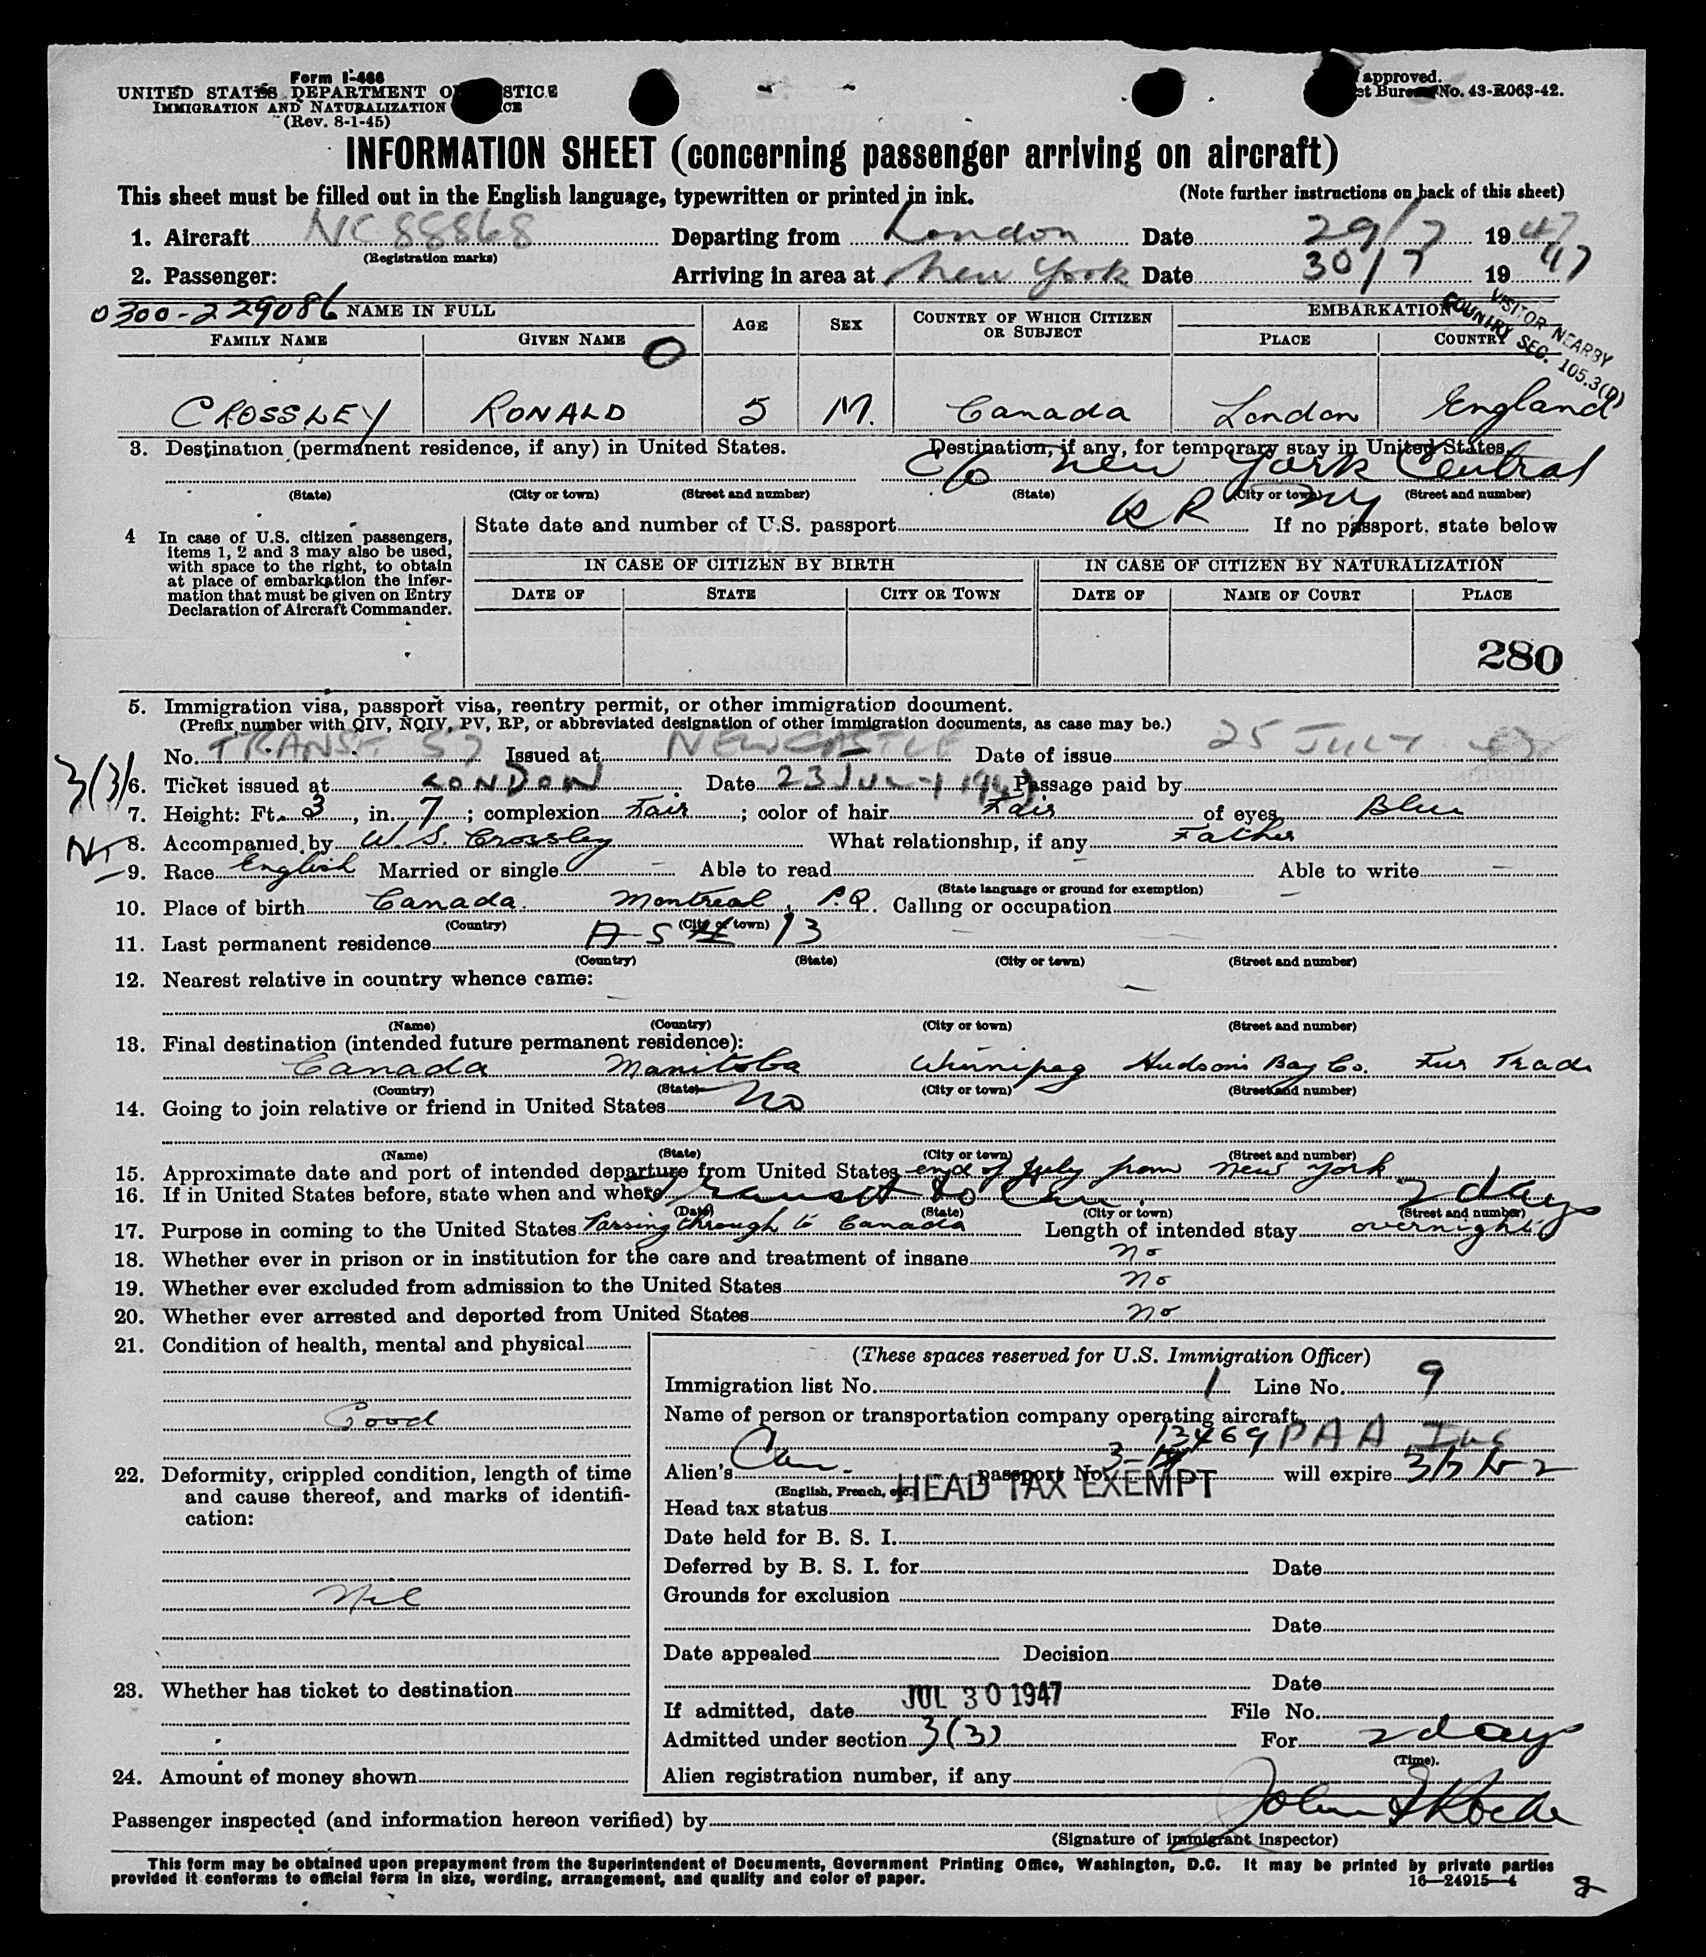 Form I-466
UNITED STATES DEPARTMENT O STICE
IMMIGRATION AND NATURALIZATION CE
(Rev. 8-1-45)
approved.
et Bureau No. 43-R063-42.
INFORMATION SHEET (concerning passenger arriving on aircraft)
This sheet must be filled out in the English language, typewritten or printed in ink.
(Note further instructions on back of this sheet)
1. Aircraft NC88868 Departing from London Date 29/7 1947
(Registration marks)
2. Passenger: Arriving in area at New York Date 30/7 1947
0300-229086 NAME IN FULL
AGE SEX COUNTRY OF WHICH CITIZEN OR SUBJECT EMBARKATION
VISITOR NEARBY
COUNTRY SEC. 105.3(D)
FAMILY NAME GIVEN NAME O PLACE COUNTRY
CROSSLEY RONALD 5 M. Canada London England
3. Destination (permanent residence, if any) in United States. Destination, if any, for temporary stay in United States.
C/o New York Central
(State) (City or town) (Street and number) (State) (City or town) (Street and number)
RR NY
4 In case of U.S. citizen passengers, items 1, 2 and 3 may also be used, with space to the right, to obtain at place of embarkation the information that must be given on Entry Declaration of Aircraft Commander.
State date and number of U.S. passport If no passport, state below
IN CASE OF CITIZEN BY BIRTH IN CASE OF CITIZEN BY NATURALIZATION
DATE OF STATE CITY OR TOWN DATE OF NAME OF COURT PLACE
280
5. Immigration visa, passport visa, reentry permit, or other immigration document.
(Prefix number with QIV, NQIV, PV, RP, or abbreviated designation of other immigration documents, as case may be.)
No. TRANSIT 57 Issued at NEWCASTLE Date of issue 25 JULY 47
3(3)
6. Ticket issued at LONDON Date 23 JULY 1947 Passage paid by
7. Height: Ft. 3, in. 7; complexion Fair; color of hair Fair of eyes Blue
8. Accompanied by W. S. Crossley What relationship, if any Father
9. Race English Married or single — Able to read Able to write —
(State language or ground for exemption)
10. Place of birth Canada. Montreal, P.Q. Calling or occupation —
(Country) (City or town)
11. Last permanent residence
(Country) (State) (City or town) (Street and number)
12. Nearest relative in country whence came:
(Name) (Country) (City or town) (Street and number)
13. Final destination (intended future permanent residence):
Canada Manitoba Winnipeg Hudson's Bay Co. Fur Trade
(Country) (State) (City or town) (Street and number)
14. Going to join relative or friend in United States No
(Name) (State) (City or town) (Street and number)
15. Approximate date and port of intended departure from United States end of July from New York
16. If in United States before, state when and where Transit to Can. 2 days
(Date) (State) (City or town) (Street and number)
17. Purpose in coming to the United States Passing through to Canada Length of intended stay overnight
18. Whether ever in prison or in institution for the care and treatment of insane No
19. Whether ever excluded from admission to the United States No
20. Whether ever arrested and deported from United States No
21. Condition of health, mental and physical
Good
22. Deformity, crippled condition, length of time
and cause thereof, and marks of identification:
Nil
23. Whether has ticket to destination
24. Amount of money shown
(These spaces reserved for U.S. Immigration Officer)
Immigration list No. 1 Line No. 9
Name of person or transportation company operating aircraft
PAA Inc
Alien's Can. passport No. will expire
(English, French, etc.)
HEAD TAX EXEMPT
Head tax status
Date held for B. S. I.
Deferred by B. S. I. for Date
Grounds for exclusion
Date
Date appealed Decision
Date
If admitted, date JUL 30 1947 File No.
Admitted under section 3(3) For 2 days
(Time).
Alien registration number, if any
Passenger inspected (and information hereon verified) by
(Signature of immigrant inspector)
This form may be obtained upon prepayment from the Superintendent of Documents, Government Printing Office, Washington, D.C. It may be printed by private parties
provided it conforms to official form in size, wording, arrangement, and quality and color of paper.
16—24915—4